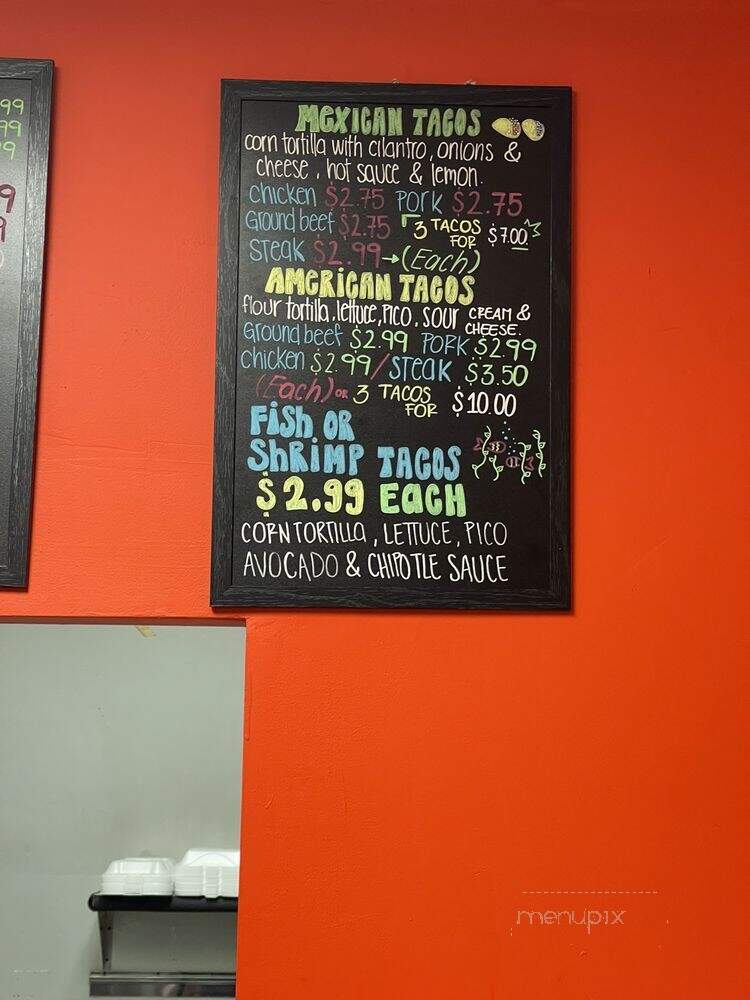 99
99
9
9
9
MEXICAN TACOS
corn tortilla with cilantro, onions &
cheese, hot sauce & lemon.
chicken $2.75 PORK $2.75
Ground beef $2.75 3 TACOS FOR $7.00
STEAK $2.99 → (Each)
AMERICAN TACOS
flour tortilla, lettuce, PICO, SOUR CREAM & CHEESE.
Ground beef $2.99 PORK $2.99
chicken $2.99 / STEAK $3.50
(Each) OR 3 TACOS FOR $10.00
Fish OR
ShRiMP TACOS
$2.99 EACH
CORN TORTILLA, LETTUCE, PICO
AVOCADO & CHIPOTLE SAUCE
menupix